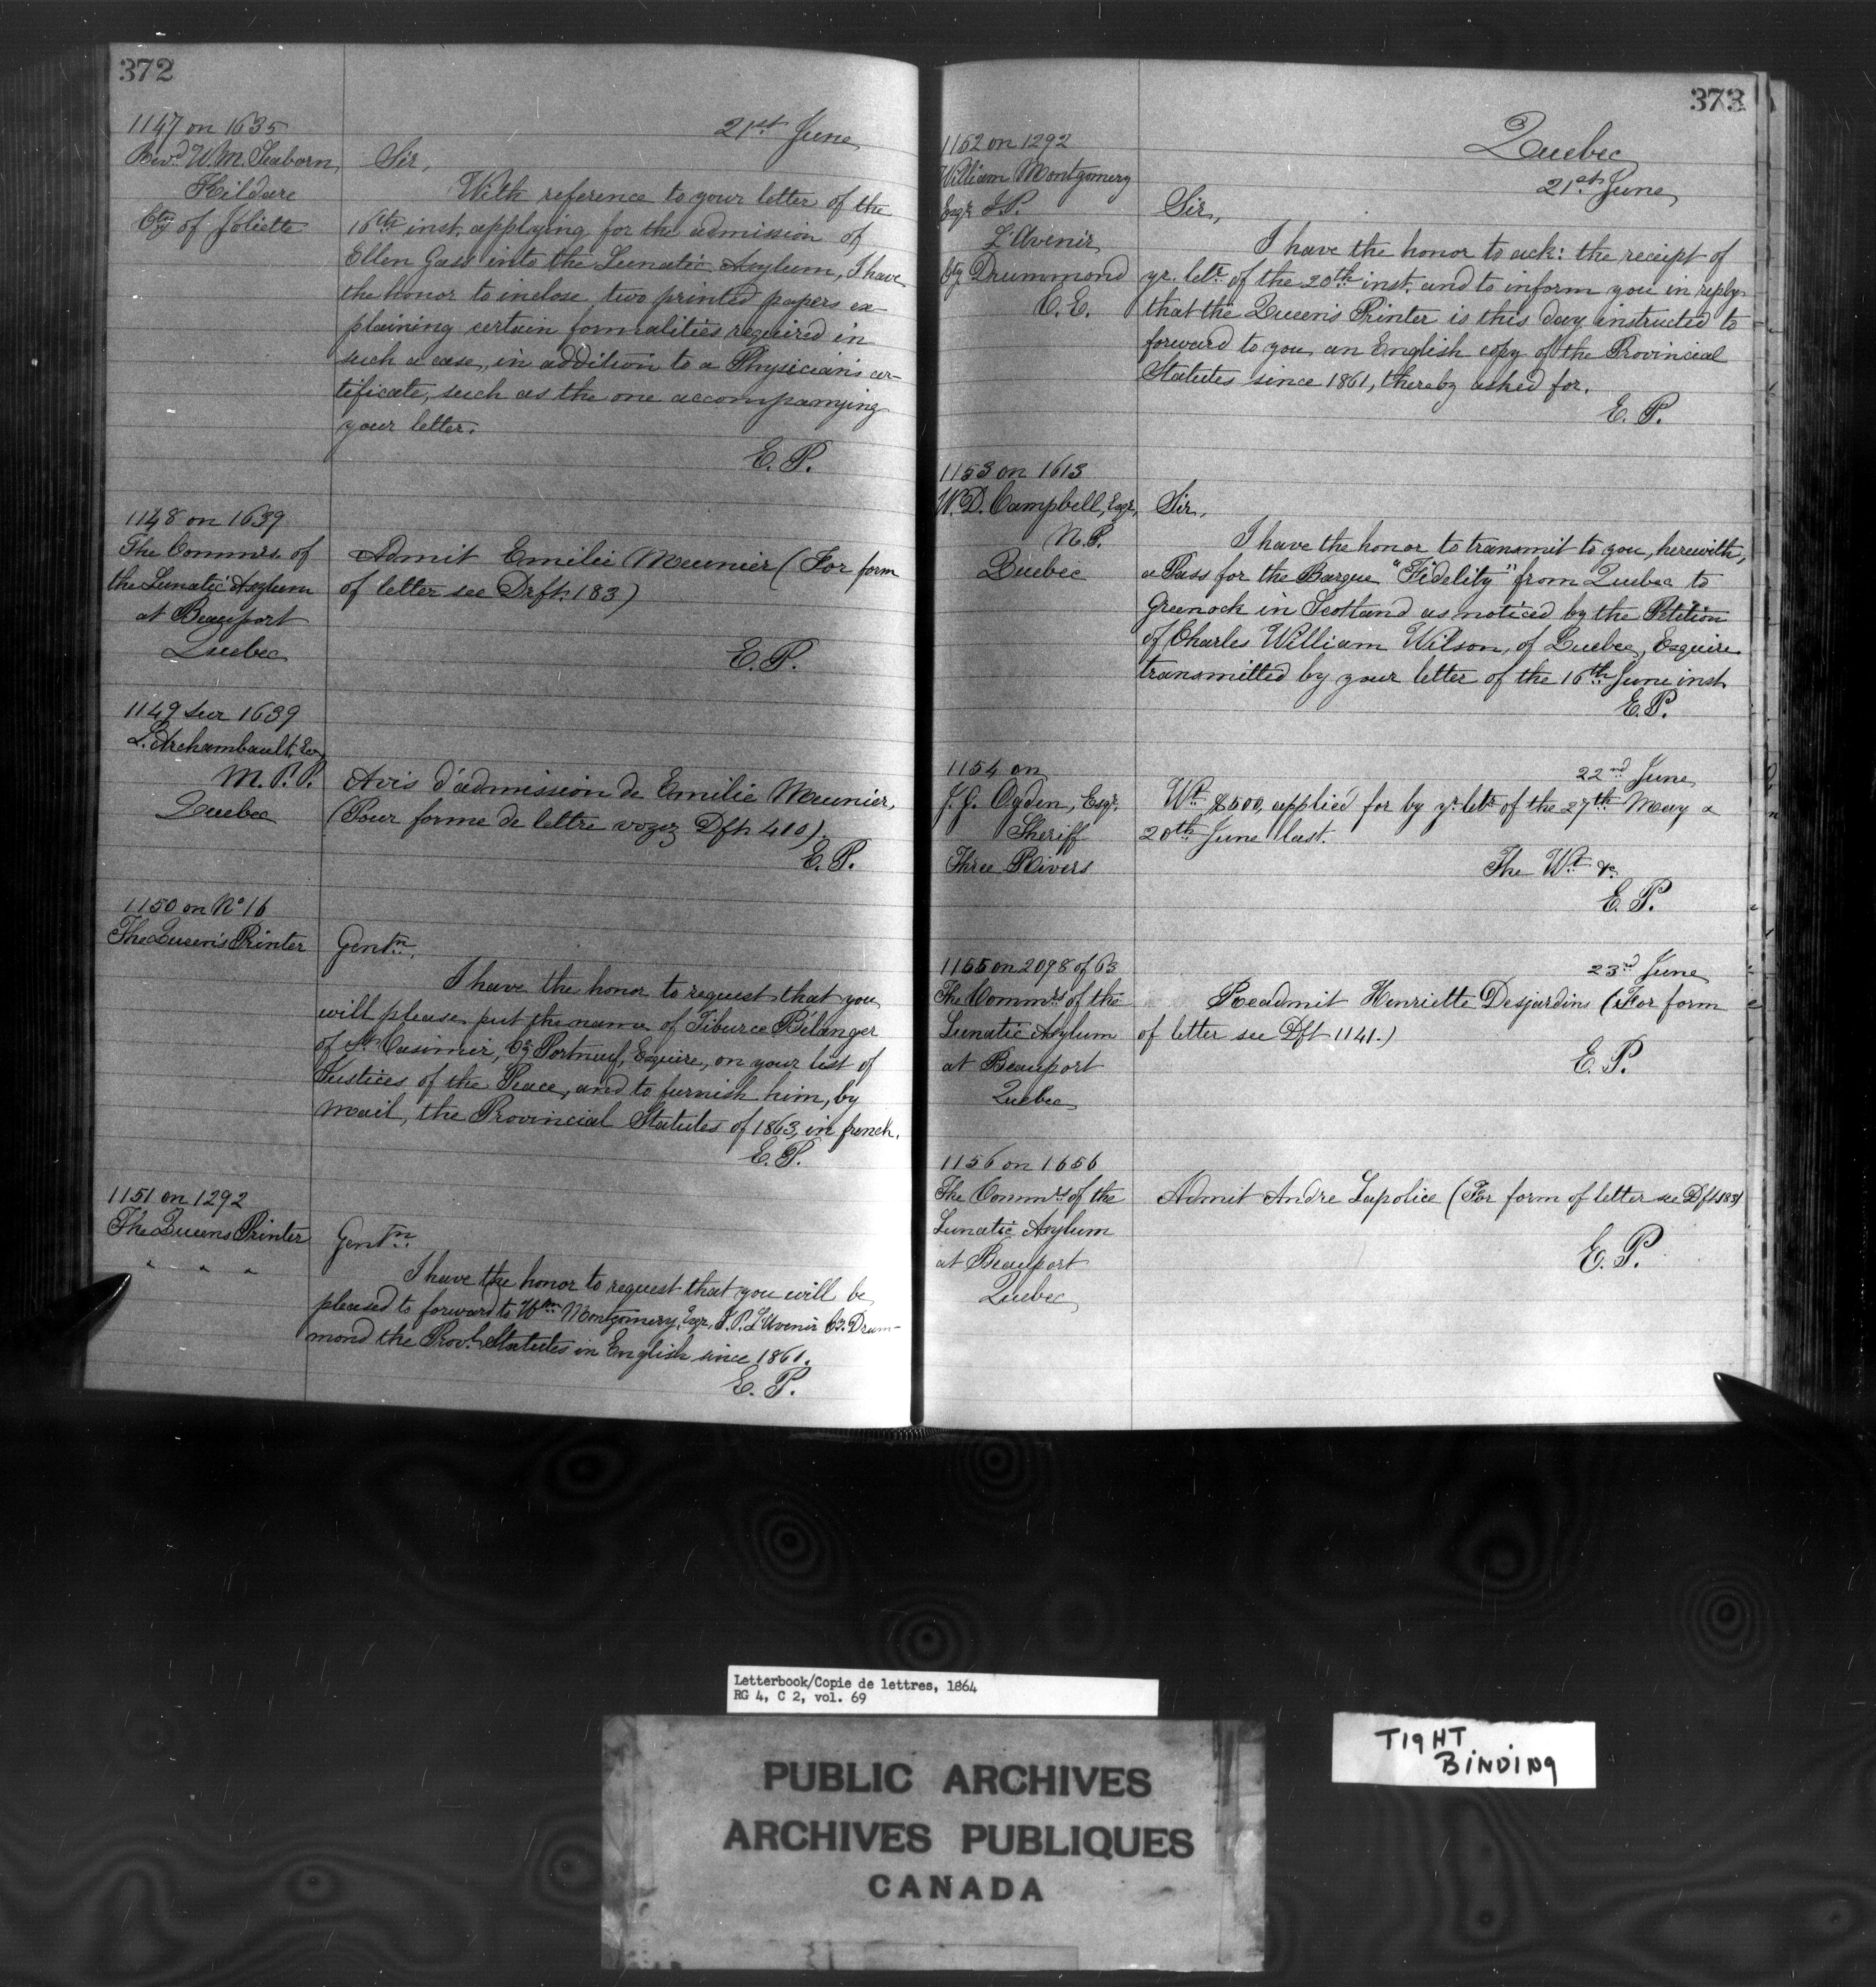 372
1147 on 1635
Revd. W. M. Seaborn,
Kildare
Cty of Joliette
21st June
Sir,
With reference to your letter of the
16th inst. applying for the admission of
Ellen Gass into the Lunatic Asylum, I have
the honor to inclose two printed papers ex-
plaining certain formalities required in
such a case, in addition to a Physician's cer-
tificate, such as the one accompanying
your letter.
E. P.
1148 on 1639
The Commrs. of
the Lunatic Asylum
at Beauport
Quebec
Admit Emilie Meunier (For form
of letter see Drft. 183)
E. P.
1149 sur 1639
L. Archambault, Esq
M. P. P.
Quebec
Avis d'admission de Emilie Meunier,
(Pour forme de lettre voyez Dft. 410).
E. P.
1150 on No 16
The Queen's Printer
Gentn.
I have the honor to request that you
will please put the name of Tiburce Bélanger
of St. Casimir, Cy Portneuf, Esquire, on your list of
Justices of the Peace, and to furnish him, by
mail, the Provincial Statutes of 1863, in french.
E. P.
1151 on 1292
The Queens Printer
" " "
Gentn.
I have the honor to request that you will be
pleased to forward to Wm Montgomery, Esqr, J. P. L'Avenir Co. Drum-
mond the Provl. Statutes in English since 1861.
E. P.
373
Quebec
21st June
1152 on 1292
William Montgomery
Esqr J. P.
L'Avenir
Cty Drummond
C. E.
Sir,
I have the honor to ack: the receipt of
yr. letr. of the 20th inst. and to inform you in reply
that the Queen's Printer is this day instructed to
forward to you an English copy of the Provincial
Statutes since 1861, thereby asked for.
E. P.
1153 on 1613
W. D. Campbell, Esqr,
N. P.
Quebec
Sir,
I have the honor to transmit to you, herewith,
a Pass for the Barque "Fidelity" from Quebec to
Greenock in Scotland as noticed by the Petition
of Charles William Wilson, of Quebec, Esquire
transmitted by your letter of the 16th June inst.
E. P.
1154 on
J. G. Ogden, Esqr,
Sheriff
Three Rivers
22nd June
Wt. $500, applied for by yr. letr. of the 27th May &
20th June last.
The Wt. &c
E. P.
1155 on 2098 of 63
The Commrs of the
Lunatic Asylum
at Beauport
Quebec
23rd June
Readmit Henriette Desjardins (For form
of letter see Dft 1141.)
E. P.
1156 on 1656
The Commrs of the
Lunatic Asylum
at Beauport
Quebec
Admit Andre Lapolice (For form of letter see Dft 183)
E. P.
Letterbook/Copie de lettres, 1864
RG 4, C 2, vol. 69
PUBLIC ARCHIVES
ARCHIVES PUBLIQUES
CANADA
TIGHT
BINDING